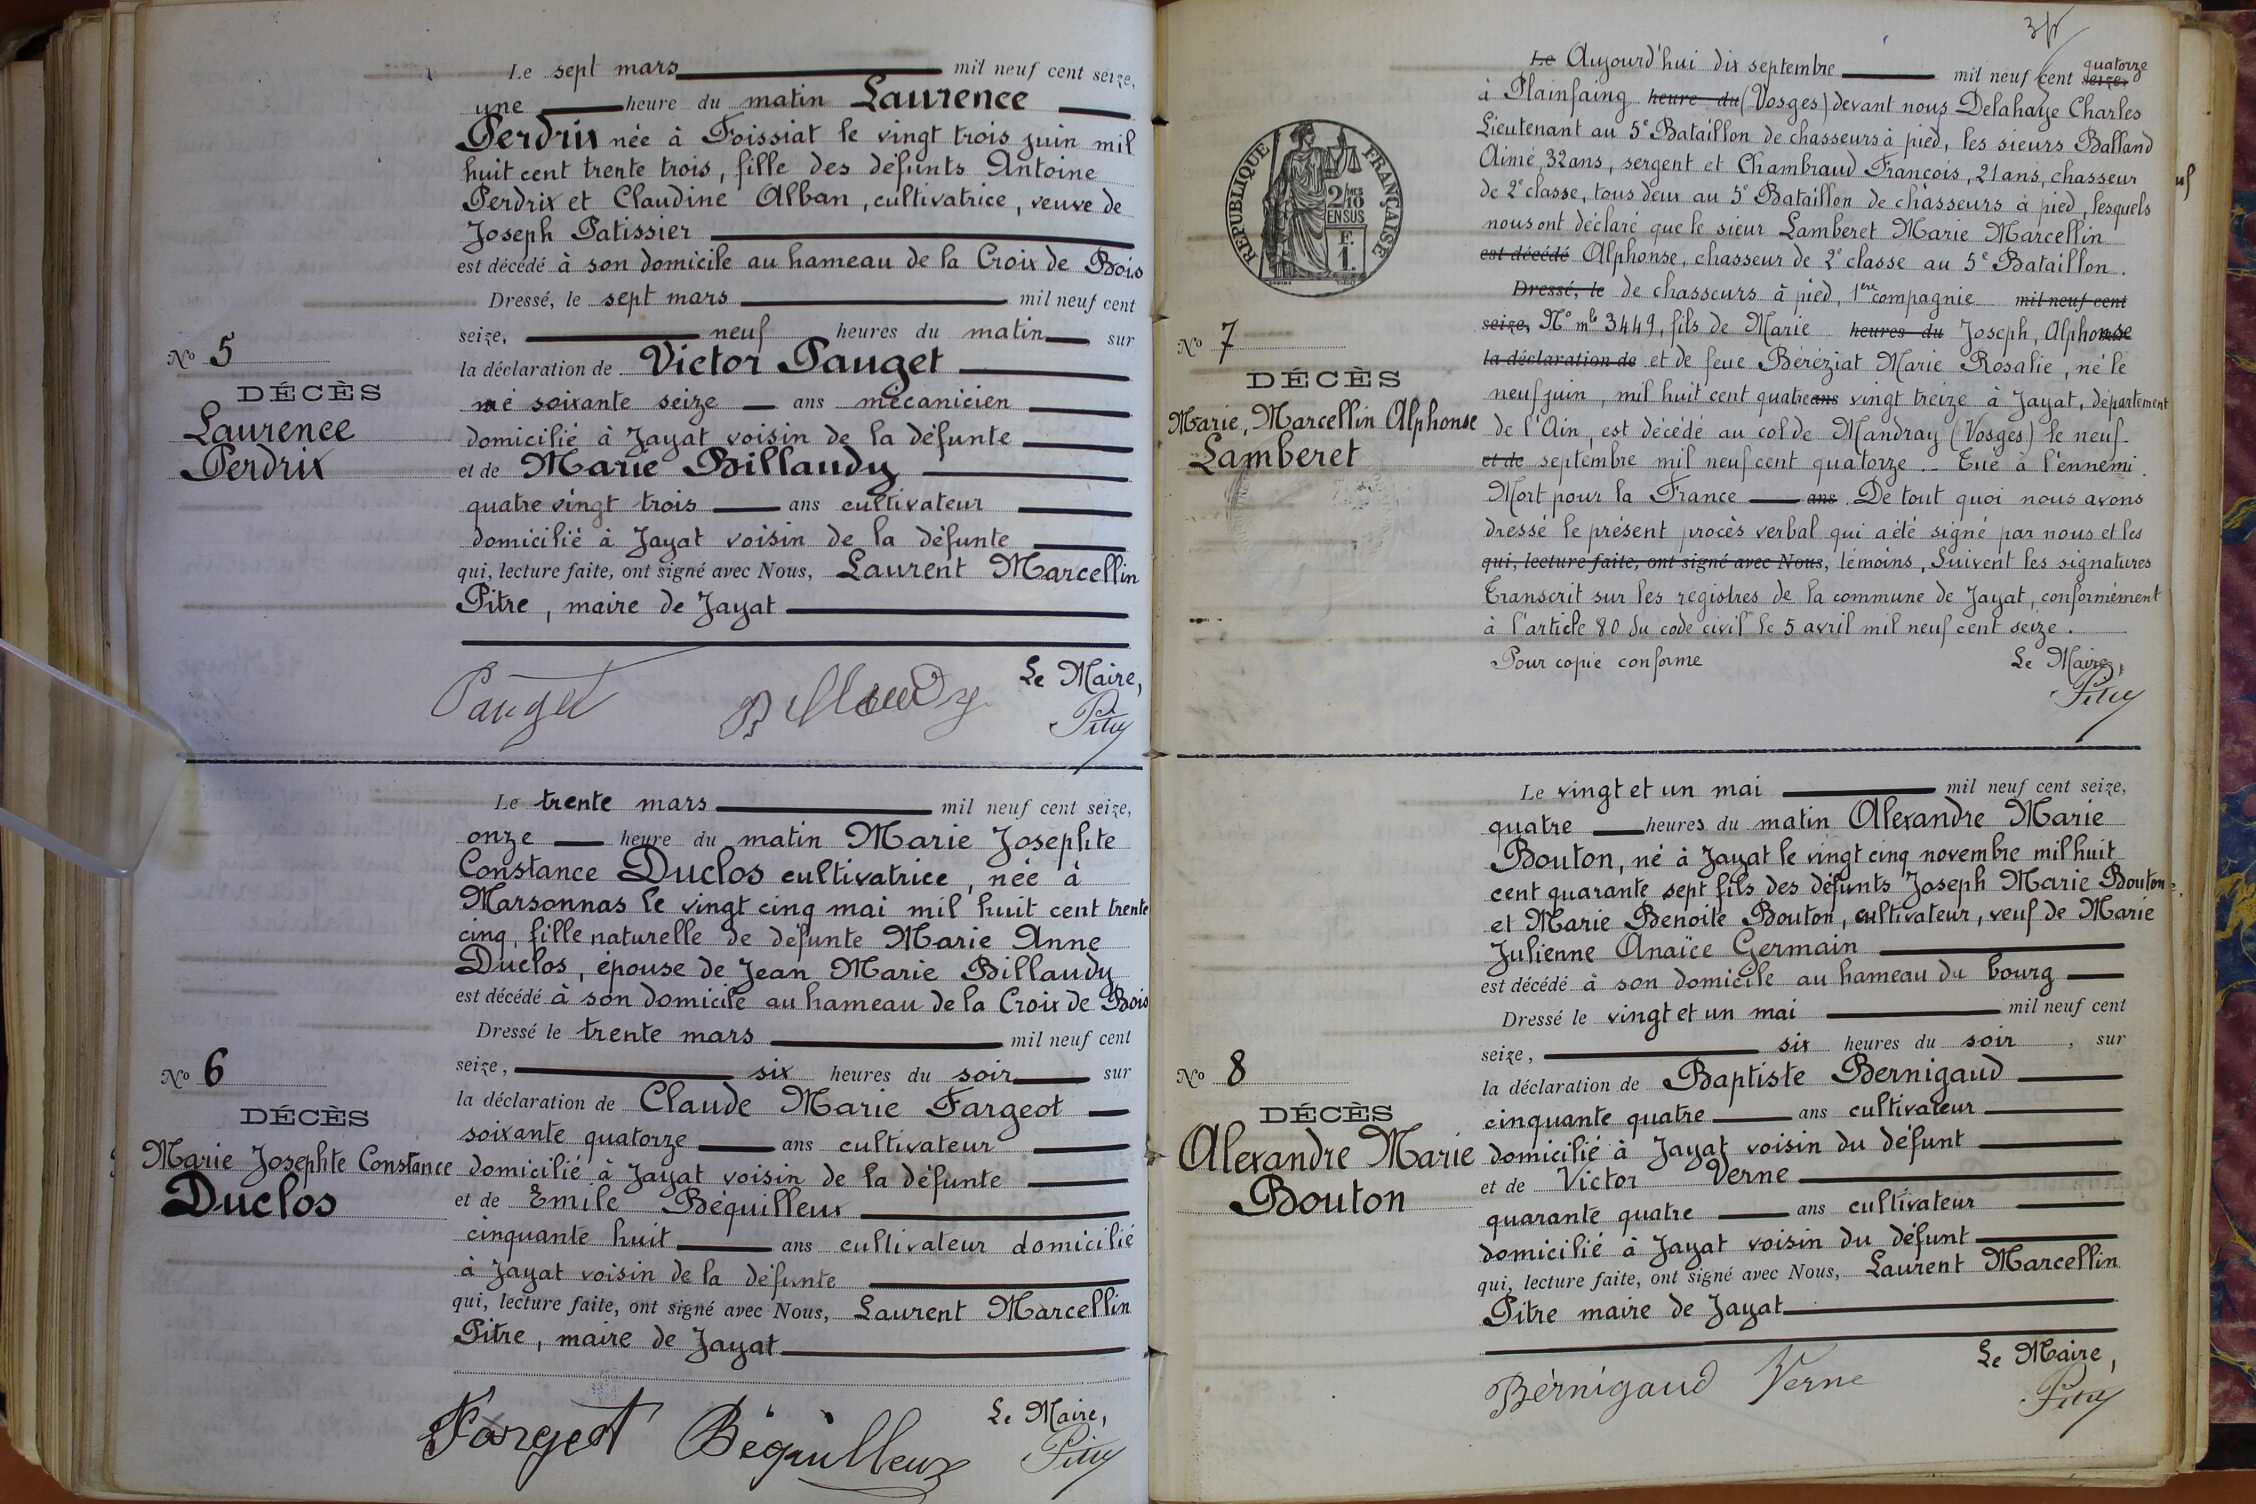 Le sept mars mil neuf cent seize,
une heure du matin Laurence
Perdrix née à Foissiat le vingt trois juin mil
huit cent trente trois, fille des défunts Antoine
Perdrix et Claudine Alban, cultivatrice, veuve de
Joseph Patissier
est décédé à son domicile au hameau de la Croix de Bois
Dressé, le sept mars mil neuf cent
seize, neuf heures du matin sur
No 5
la déclaration de Victor Pauget
DÉCÈS
né soixante seize ans mécanicien
Laurence
domicilié à Jayat voisin de la défunte
Perdrix
et de Marie Billaudy
quatre vingt trois ans cultivateur
domicilié à Jayat voisin de la défunte
qui, lecture faite, ont signé avec Nous, Laurent Marcellin
Pitre, maire de Jayat
Le Maire,
Pauget Billaudy Pitre
Le trente mars mil neuf cent seize,
onze heure du matin Marie Josephte
Constance Duclos cultivatrice, née à
Marsonnas le vingt cinq mai mil huit cent trente
cinq, fille naturelle de défunte Marie Anne
Duclos, épouse de Jean Marie Billaudy
est décédé à son domicile au hameau de la Croix de Bois
Dressé le trente mars mil neuf cent
seize, six heures du soir sur
No 6
la déclaration de Claude Marie Fargeot
DÉCÈS
soixante quatorze ans cultivateur
Marie Josephte Constance
domicilié à Jayat voisin de la défunte
Duclos
et de Emile Béquilleux
cinquante huit ans cultivateur domicilié
à Jayat voisin de la défunte
qui, lecture faite, ont signé avec Nous, Laurent Marcellin
Pitre, maire de Jayat
Le Maire,
Fargeot Béquilleux Pitre
Le Aujourd'hui dix septembre mil neuf cent seize, quatorze
à Plainfaing heure du (Vosges) devant nous Delahaye Charles
Lieutenant au 5e Bataillon de chasseurs à pied, les sieurs Balland
Aimé, 32 ans, sergent et Chambraud François, 21 ans, chasseur
de 2e classe, tous deux au 5e Bataillon de chasseurs à pied, lesquels
nous ont déclaré que le sieur Lamberet Marie Marcellin
est décédé Alphonse, chasseur de 2e classe au 5e Bataillon.
Dressé, le de chasseurs à pied, 1ere compagnie mil neuf cent
seize, No mle 3449, fils de Marie heures du Joseph, Alphonse
la déclaration de et de feue Béréziat Marie Rosalie, né le
neuf juin, mil huit cent quatre ans vingt treize à Jayat, département
de l'Ain, est décédé au col de Mandray (Vosges) le neuf
et de septembre mil neuf cent quatorze. Tué à l'ennemi.
Mort pour la France ans. De tout quoi nous avons
dressé le présent procès verbal qui a été signé par nous et les
qui, lecture faite, ont signé avec Nous, témoins, Suivent les signatures
Transcrit sur les registres de la commune de Jayat, conformément
à l'article 80 du code civil le 5 avril mil neuf cent seize.
Pour copie conforme Le Maire,
Pitre
RÉPUBLIQUE FRANÇAISE
2/10 MES
EN SUS
F.
1.
No 7
DÉCÈS
Marie, Marcellin Alphonse
Lamberet
Le vingt et un mai mil neuf cent seize,
quatre heures du matin Alexandre Marie
Bouton, né à Jayat le vingt cinq novembre mil huit
cent quarante sept fils des défunts Joseph Marie Bouton
et Marie Benoite Bouton, cultivateur, veuf de Marie
Julienne Anaïce Germain
est décédé à son domicile au hameau du bourg
Dressé le vingt et un mai mil neuf cent
seize, six heures du soir, sur
No 8
la déclaration de Baptiste Bernigaud
DÉCÈS
cinquante quatre ans cultivateur
Alexandre Marie
domicilié à Jayat voisin du défunt
Bouton
et de Victor Verne
quarante quatre ans cultivateur
domicilié à Jayat voisin du défunt
qui, lecture faite, ont signé avec Nous, Laurent Marcellin
Pitre maire de Jayat
Le Maire,
Bérnigaud Verne Pitre